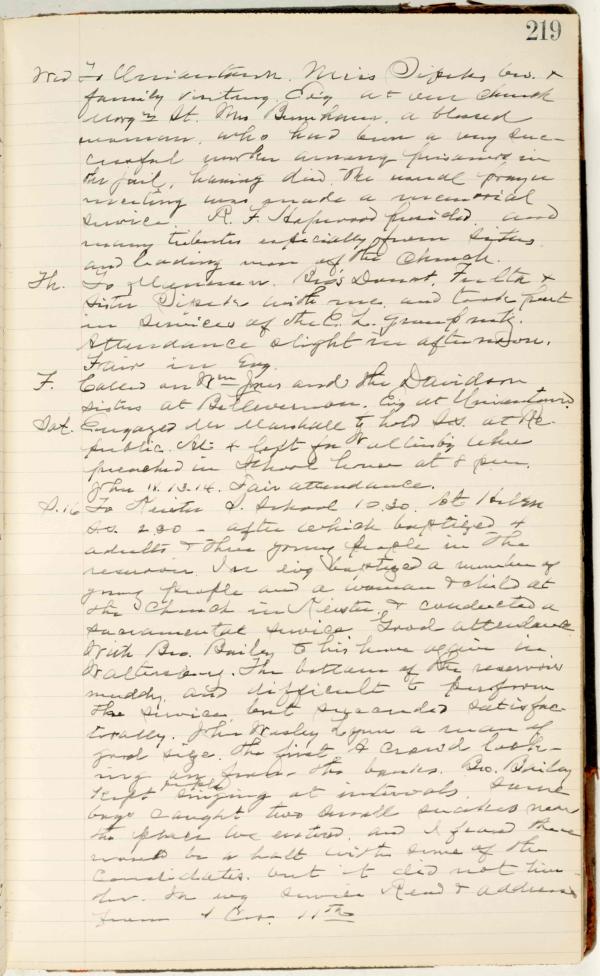 219
Wed To Uniontown. Miss Sipes, bro. &
family visiting. Evg at our Church
Morgn St. Mrs a blessed
woman, who had been a very suc-
cessful worker among prisoners in
the jail, having died, the usual prayer
meeting was made a memorial
service. R. F. Hopwood presided and
many tributes especially from sisters
and leading men of the Church.
Th. To Bros Fulta &
Sister with me and took part
in services of the C. L. group mtg.
Attendance slight in afternoon.
Fair in Evg.
F. Called on Wm Jones and the Davidson
sisters at Bellevernon. Evg at Uniontown.
Sat. Engaged Mr Marshall to hold Ser. at Re-
public. At 4 left for where
preached in School house at 8 p.m.
John 11. 13. 14. Fair attendance.
S. 16 To Keister S. School 10.30. At Helen
S.S. 2.30 - after which baptized 4
adults & three young people in the
reservoir. In evg baptized a number of
young people and a woman & child at
the Church in Keister, & conducted a
sacramental service. Good attendance.
With Bro. Bailey to his home again in
Waltersburg. The bottom of the reservoir
muddy, and difficult to perform
the service, but succeeded satisfac-
torally. John Wesley a man of
good size, the first. A crowd look-
ing on from the banks. Bro. Bailey
kept people singing at intervals. Some
boys caught two small snakes near
the place we entered, and I feared there
would be a halt with some of the
candidates, but it did not hin-
der. In evg service Read & address
from 1 Cor. 11th